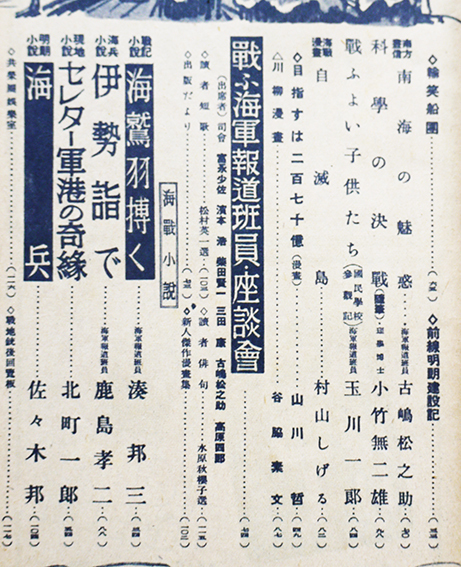 ◇輸笑船團……(六〇) ◇前線明朗建設記……(三三)
南方畫信 南海の魅惑……海軍報道班員 古嶋松之助(七〇)
科學の決戰(隨筆)……理學博士 小竹無二雄(六八)
戰ふよい子供たち(國民學校參觀記)……玉川一郎(五四)
海戰漫畫 自滅島……村山しげる(八三)
◇目指すは二百七十億(漫策)……山川哲(四九)
△川柳漫畫……谷脇素文(八七)
戰ふ海軍報道班員・座談會……(七四)
(出席者)司會 富永少佐 濱本浩 柴田賢一 三田康 古嶋松之助 高原四郎
◇讀者短歌……松村英一選(一〇五) ◇讀者俳句……水原秋櫻子選(一一五)
◇出版だより……(七三) ◇新人傑作漫畫集……(一〇二)
海戰小說
戰記小說 海鷲羽搏く……海軍報道班員 湊邦三(一四)
海兵小說 伊勢詣で……海軍報道班員 鹿島孝二(八八)
現地小說 セレター軍港の奇緣……北町一郎(三八)
明朗小說 海兵……佐々木邦(一〇四)
◇共榮圈娛樂室……(一二六) ◇現地銃後回覽板……(一二七)